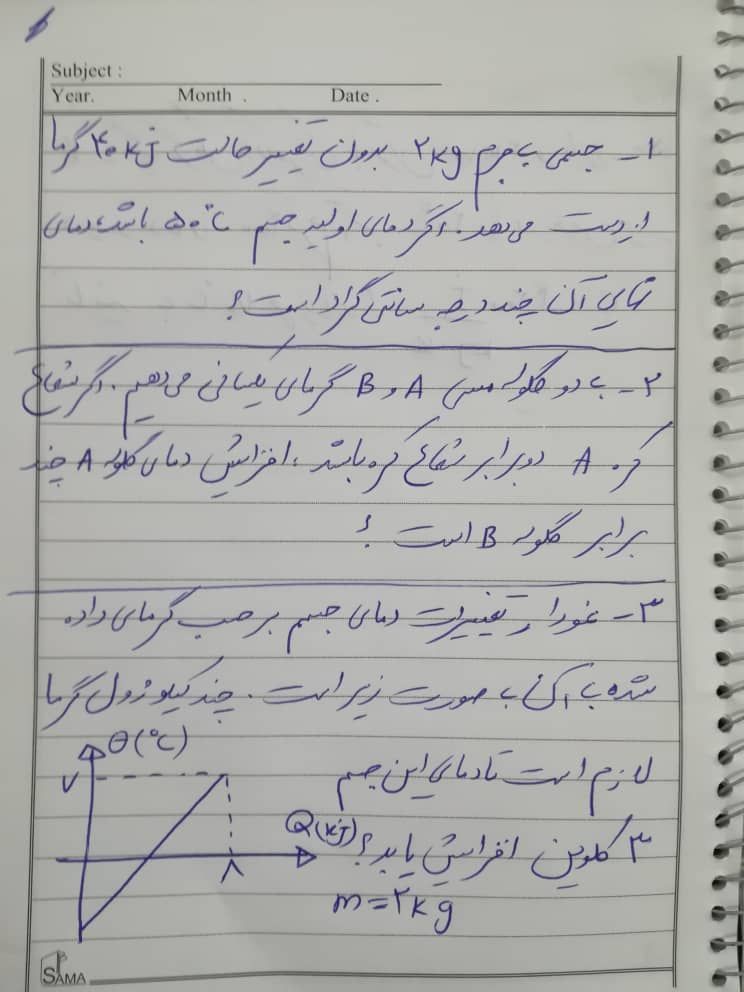 Subject :
Year. Month . Date .
۱- جسمی به جرم ۲kg بدون تغییر حالت ۴۰kj گرما
از دست می‌دهد. اگر دمای اولیه جسم ۵۰°C باشد، دمای
نهایی آن چند درجه سانتی گراد است؟
۲- به دو گلوله مسی A و B گرمای یکسانی می‌دهیم. اگر شعاع
کره A دو برابر شعاع کره باشد، افزایش دمای گلوله A چند
برابر گلوله B است؟
۳- نمودار تغییرات دمای جسم بر حسب گرمای داده
شده به آن به صورت زیر است. چند کیلو ژول گرما
لازم است تا دمای این جسم
۳ کلوین افزایش یابد؟
m=۲kg
θ(°C)
۷
Q(kJ)
۸
SAMA